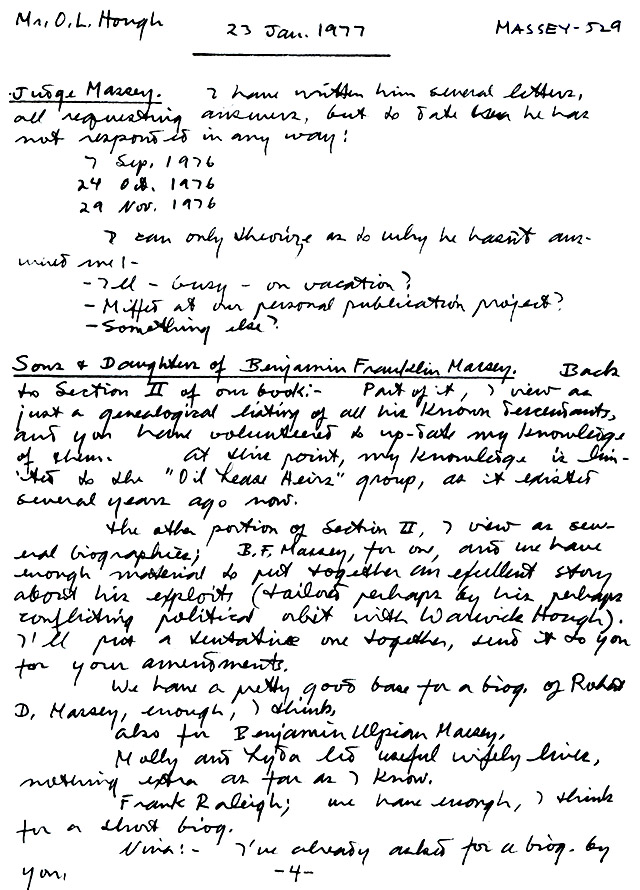 Mr. O.L. Hough 23 Jan. 1977 MASSEY-529
Judge Massey. I have written him several letters,
all requesting answers, but to date he has
not responded in any way:
7 Sep. 1976
24 Oct. 1976
29 Nov. 1976
I can only theorize as to why he hasn't ans-
wered me:-
- Ill - busy - on vacation?
- Miffed at our personal publication project?
- Something else?
Sons & Daughters of Benjamin Franklin Massey. Back
to Section II of our book:- Part of it, I view as
just a genealogical listing of all his known descendants,
and you have volunteered to up-date my knowledge
of them. At this point, my knowledge is lim-
ited to the "Oil Lease Heirs" group, as it existed
several years ago now.
The other portion of Section II, I view as sev-
eral biographies; B.F. Massey, for one, and we have
enough material to put together an excellent story
about his exploits (tailored perhaps by his perhaps
conflicting political orbit with Warwick Hough).
I'll put a tentative one together, send it to you
for your amendments.
We have a pretty good base for a biog. of Robert
D. Massey, enough, I think.
also for Benjamin Ulpian Massey.
Molly and Lyda led useful wifely lives,
nothing extra as far as I know.
Frank Raleigh; we have enough, I think
for a short biog.
Nina:- I've already asked for a biog. by
you.
-4-